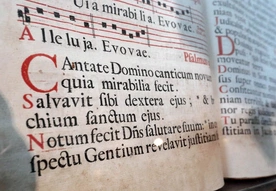 Ui a mirabi li a. Evovae.
A lle lu ja. Evovae.
Psalmus
Cantate Domino canticum novum
quia mirabilia fecit.
Salvavit sibi dextera ejus ; * & b
chium sanctum ejus.
Notum fecit Dñs salutare suum: * in
spectu Gentium revelavit justitiam